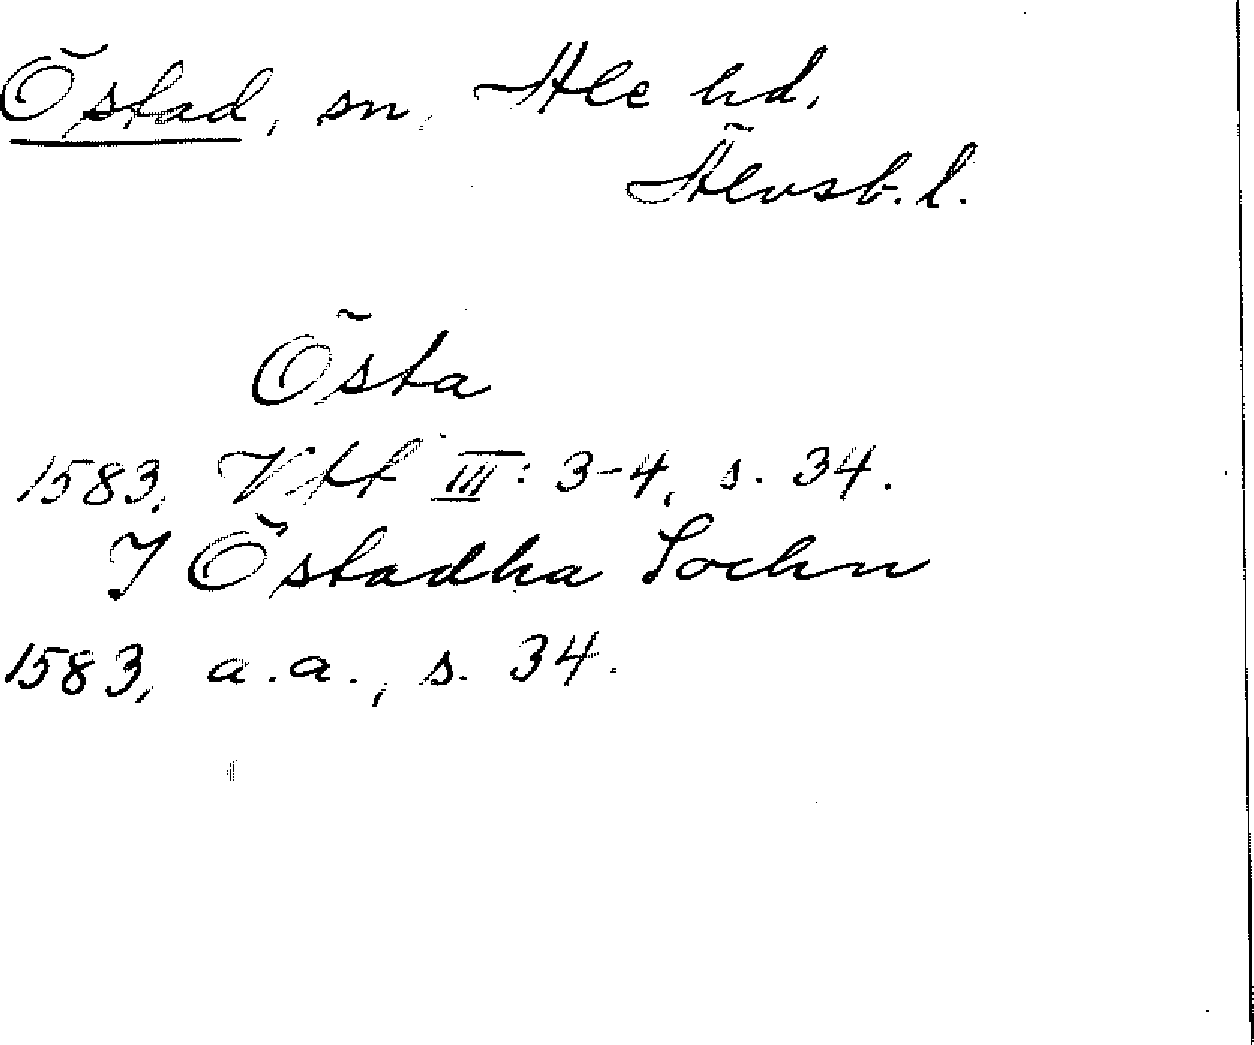 Östad, sn, Ale hd,
Älvsb. l.
Östa
1583, Vff III: 3-4, s. 34.
I Östadha Sochn
1583, a.a., s. 34.